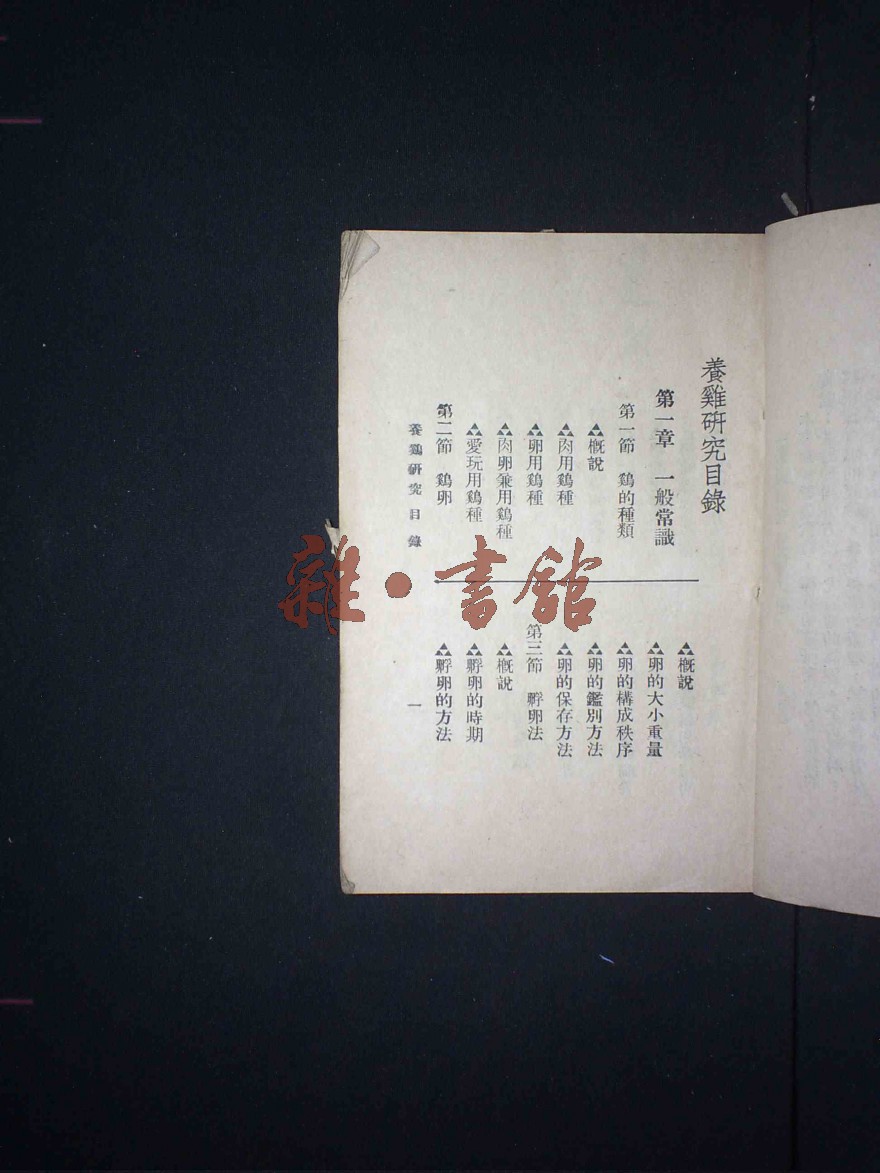 養雞研究目錄
第一章　一般常識
第一節　鷄的種類
概說
肉用鷄種
卵用鷄種
肉卵兼用鷄種
愛玩用鷄種
第二節　鷄卵
概說
卵的大小重量
卵的構成秩序
卵的鑑別方法
卵的保存方法
第三節　孵卵法
概說
孵卵的時期
孵卵的方法
養鷄研究目錄
一
雜·書館